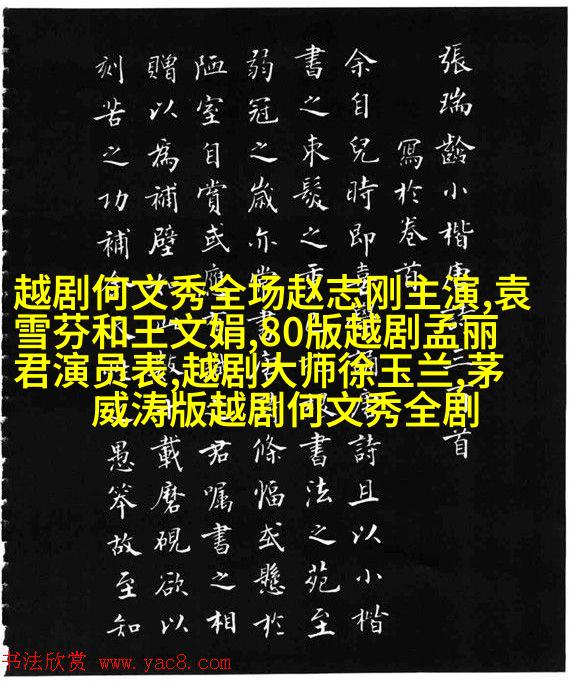 張瑞齡小楷唐詩三百首
寫於卷首
余自兒時即喜誦唐詩且以小楷
書之束髮之
書法之苑至
弱冠之歲亦
書唐
條幅或懸於
陋室自賞或應
君囑書之相
贈以為補壁
載磨硯欲以
刻苦之功補
愚笨故至知
越剧何文秀全场赵志刚主演,袁
雪芬和王文娟,80版越剧孟丽
君演员表,越剧大师徐玉兰,茅
威涛版越剧何文秀全剧
书法欣赏 www.yac8.com